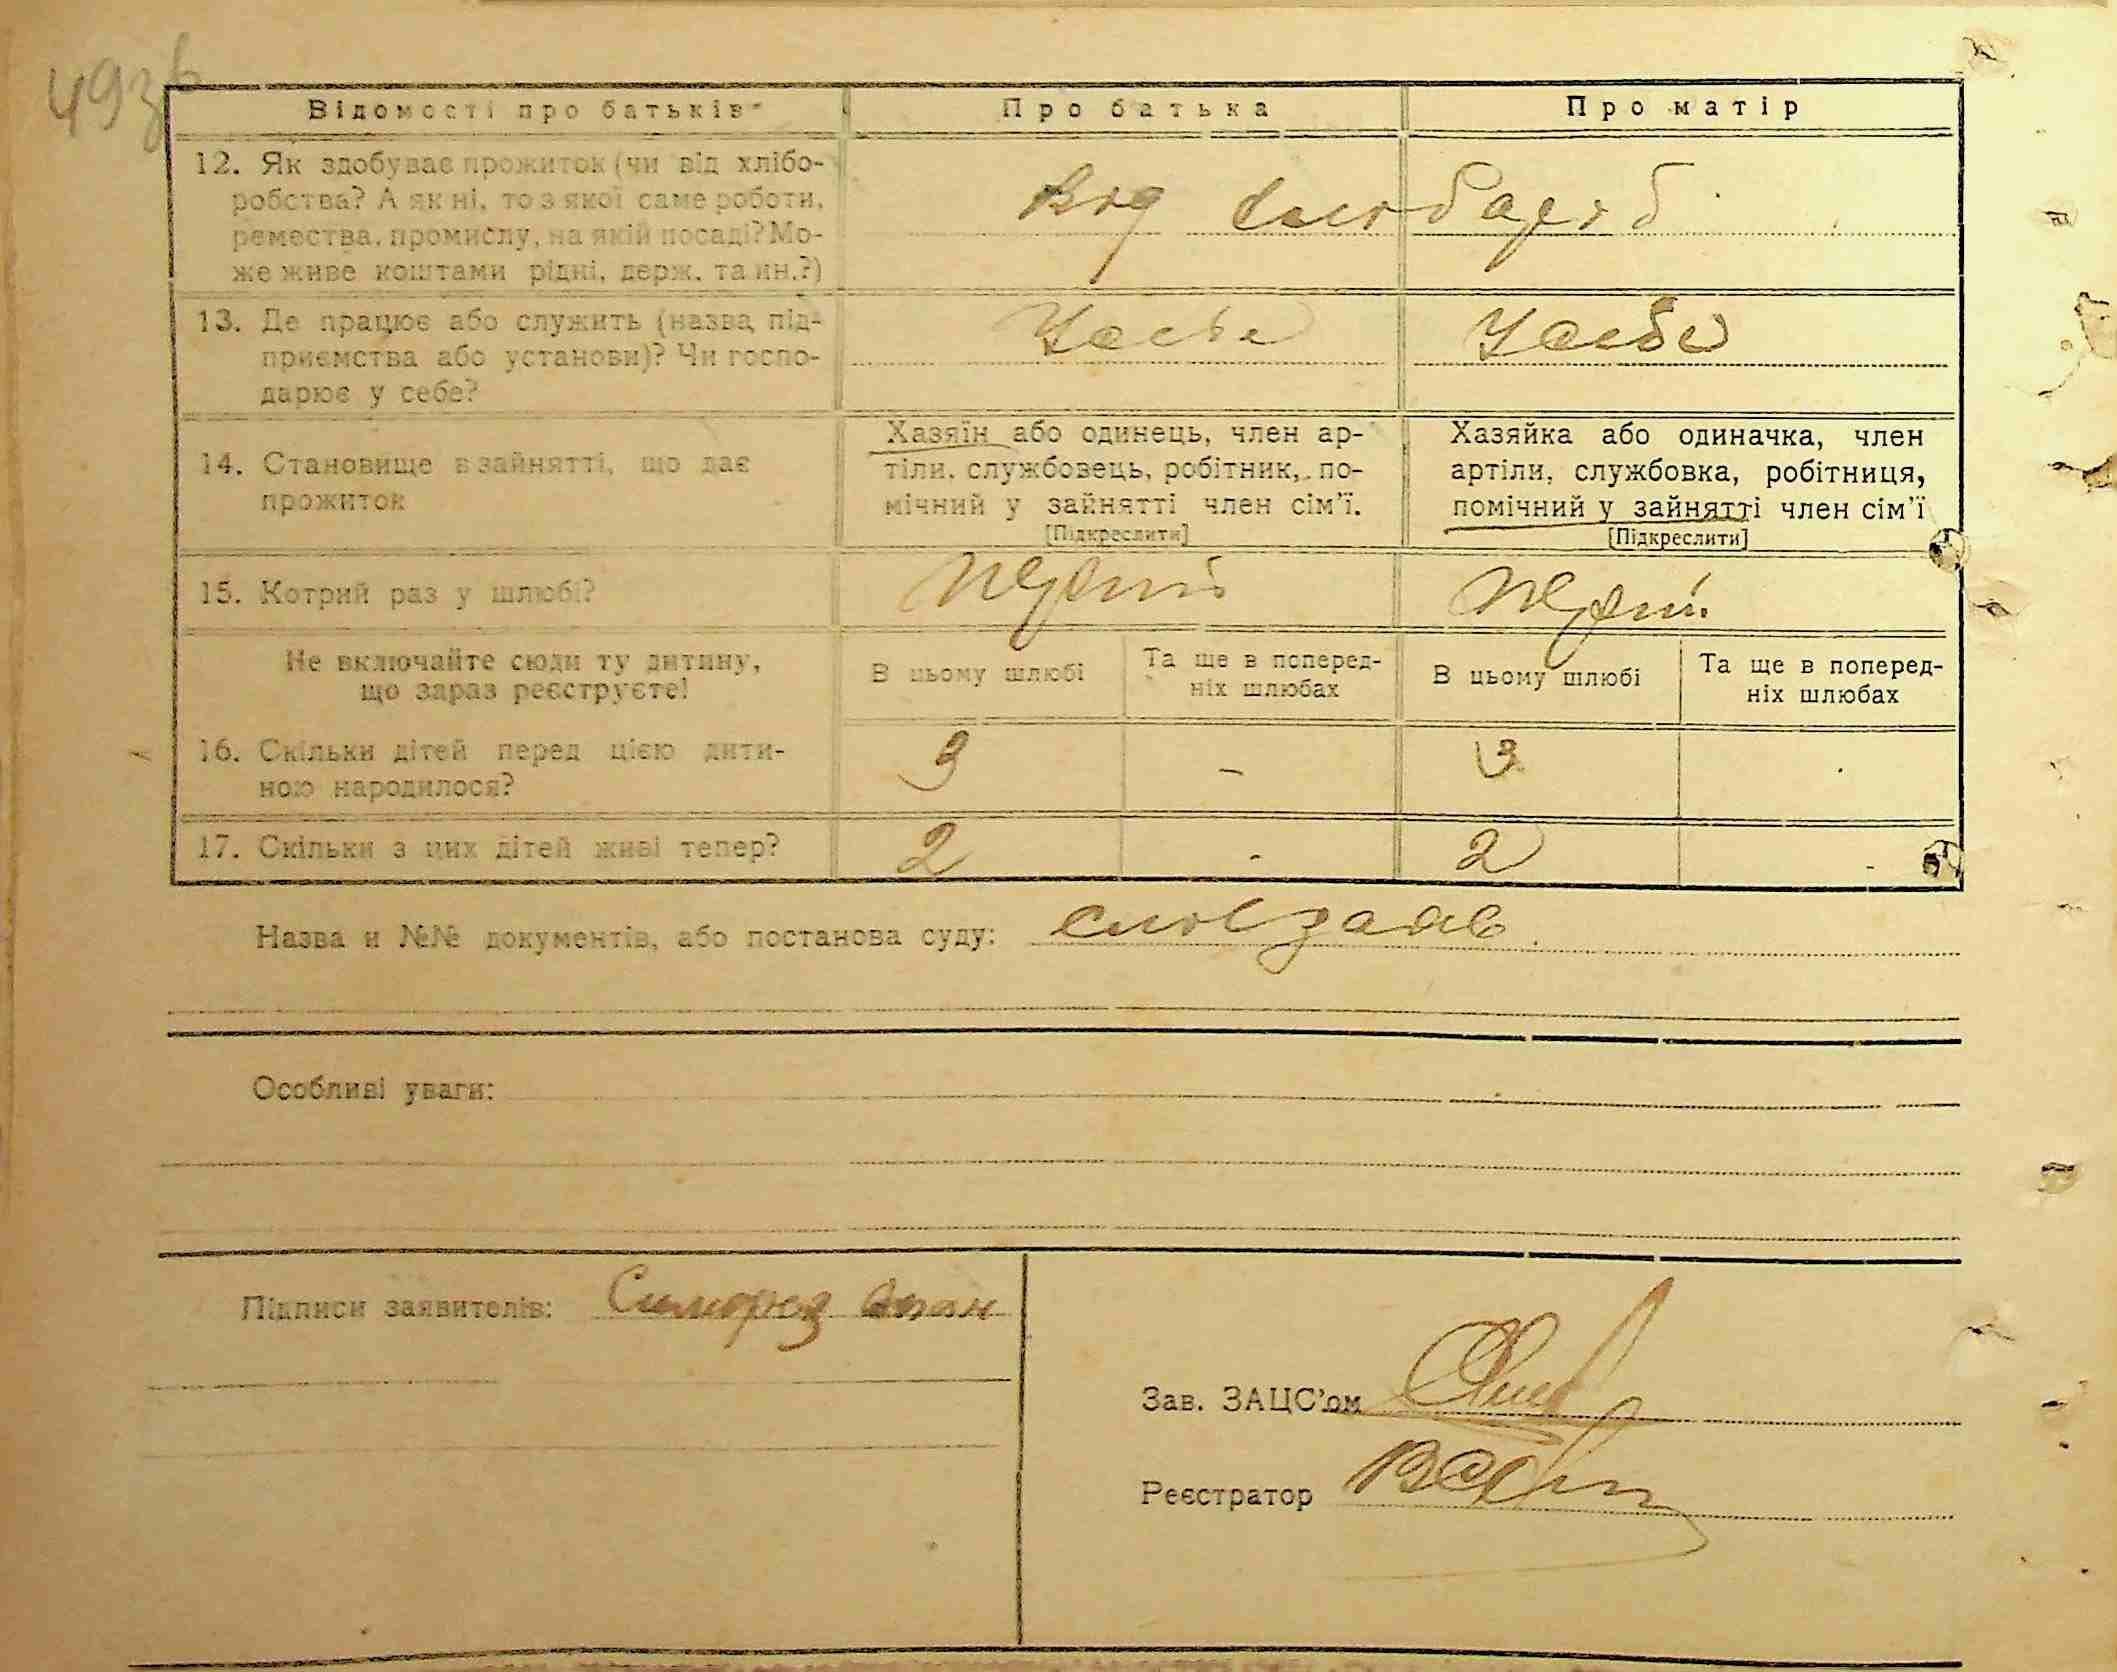 493б
Відомості про батьків
Про батька
Про матір
12. Як здобуває прожиток (чи від хлібо-
робства? А як ні, то з якої саме роботи,
ремества, промислу, на якій посаді? Мо-
же живе коштами рідні, держ. та ин.?)
Від хлібароб
13. Де працює або служить (назва під-
приємства або установи)? Чи госпо-
дарює у себе?
У себе
У себе
14. Становище в зайнятті, що дає
прожиток
Хазяїн або одинець, член ар-
тіли, службовець, робітник, по-
мічний у зайнятті член сім'ї.
[Підкреслити]
Хазяйка або одиначка, член
артіли, службовка, робітниця,
помічний у зайнятті член сім'ї
[Підкреслити]
15. Котрий раз у шлюбі?
Перший
Перший
Не включайте сюди ту дитину,
що зараз реєструєте!
В цьому шлюбі
Та ще в поперед-
ніх шлюбах
В цьому шлюбі
Та ще в поперед-
ніх шлюбах
16. Скільки дітей перед цією дити-
ною народилося?
3
-
3
17. Скільки з цих дітей живі тепер?
2
-
2
-
Назва й №№ документів, або постанова суду: слов заяв.
Особливі уваги:
Підписи заявителів:
Зав. ЗАЦС'ом
Реєстратор